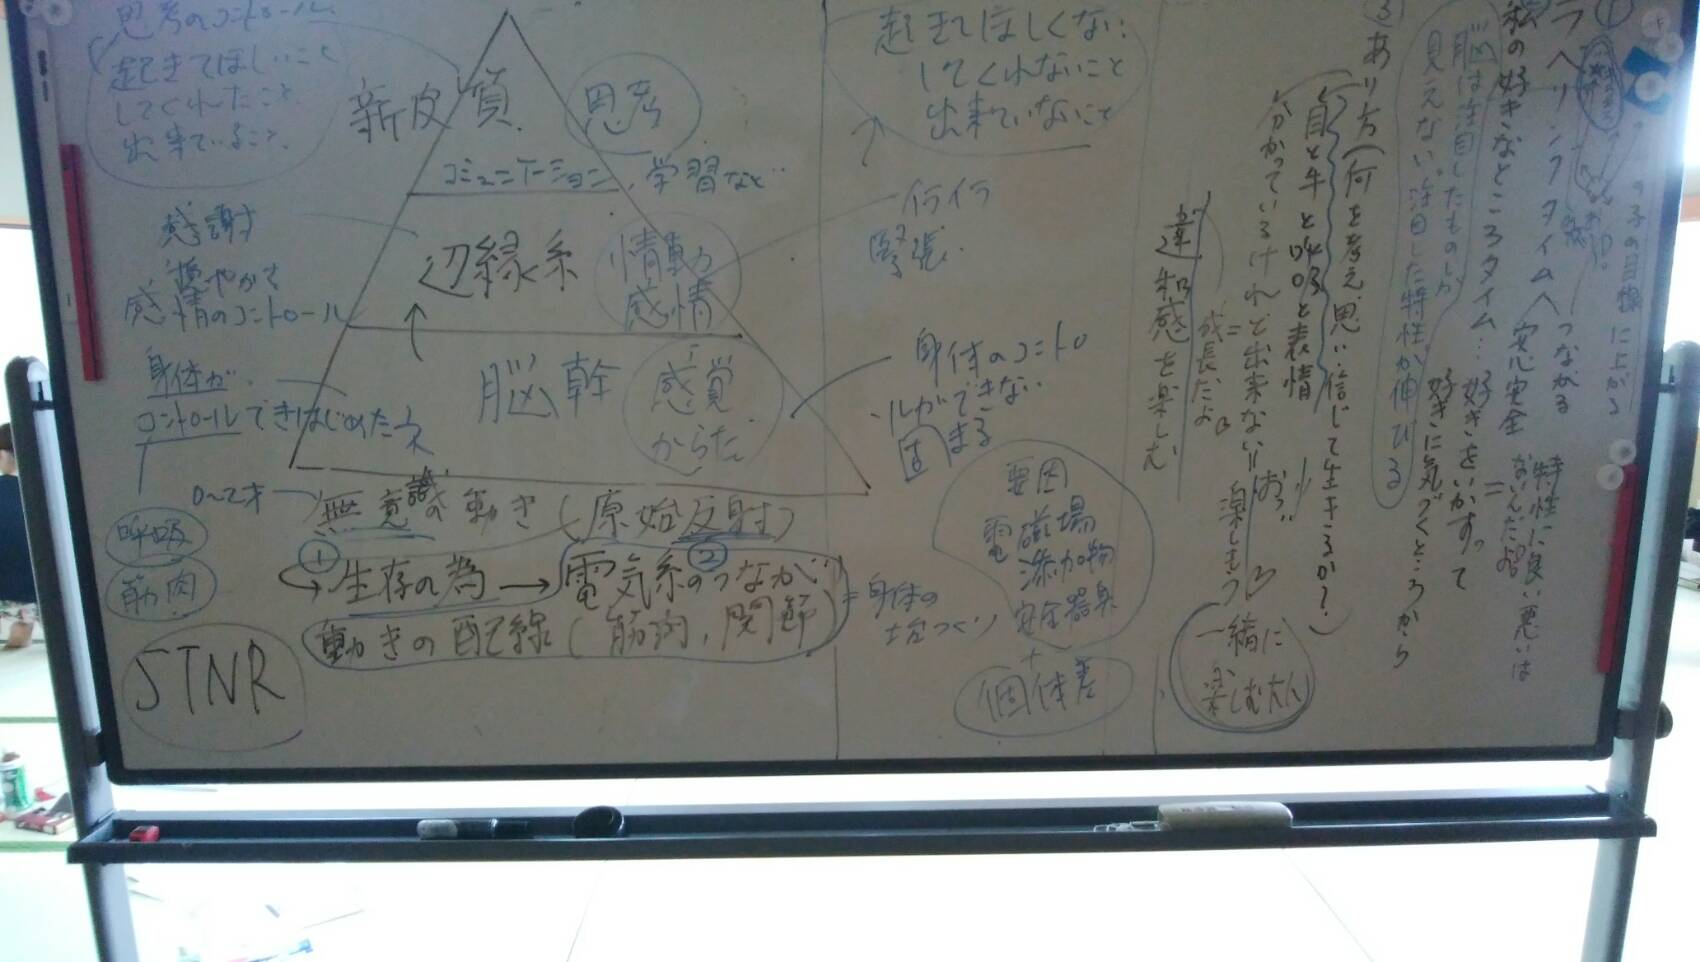 思考のコントロール
起きてほしいこと
してくれたこと
出来ていること
感謝
穏やかで
感情のコントロール
身体が
コントロールできはじめたネ
0〜2才
呼吸
筋肉
STNR
新皮質
思考
コミュニケーション、学習など
辺縁系
情動
感情
脳幹
感覚
からだ
無意識の動き(原始反射)
①
生存の為→電気系のつながり
②
動きの配線(筋肉,関節)
=身体の
土台づくり
起きてほしくない
してくれないこと
出来ていないこと
イライラ
緊張
身体のコントロ
ールができない
固まる
要因
電磁場
添加物
+
個体差
①
の子の目線に上がる
つながる
安心安全
私の好きなところタイム…好きをいかすって
好きに気づくところから
特性に良い悪いは
ないんだよ
脳は注目したものしか
見えない。注目した特性が伸びる
③あり方(何を考え思い信じて生きるか?)
目と手と呼吸と表情
分かっているけれど出来ない=
成長だよ
楽しもう
違和感を楽しむ
一緒に
楽しむ大人